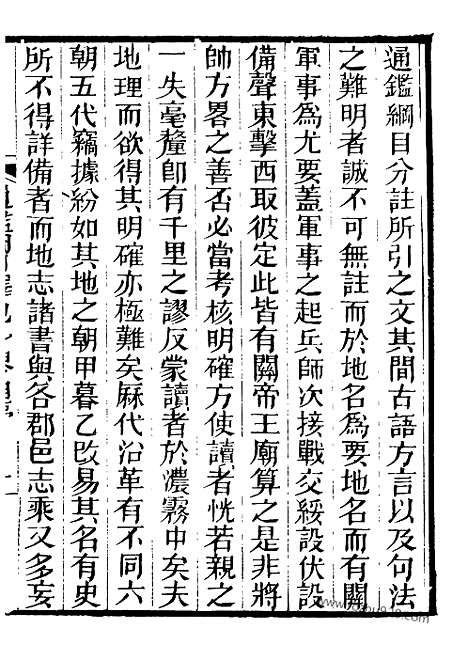 通鑑綱目分註所引之文其間古語方言以及句法
之難明者誠不可無註而於地名爲要地名而有關
軍事爲尤要蓋軍事之起兵師次接戰交綏設伏設
備聲東擊西取彼定此皆有關帝王廟算之是非將
帥方畧之善否必當考核明確方使讀者恍若親之
一失毫釐卽有千里之謬反蒙讀者於濃霧中矣夫
地理而欲得其明確亦極難矣厤代沿革有不同六
朝五代竊據紛如其地之朝甲暮乙改易其名有史
所不得詳備者而地志諸書與各郡邑志乘又多妄